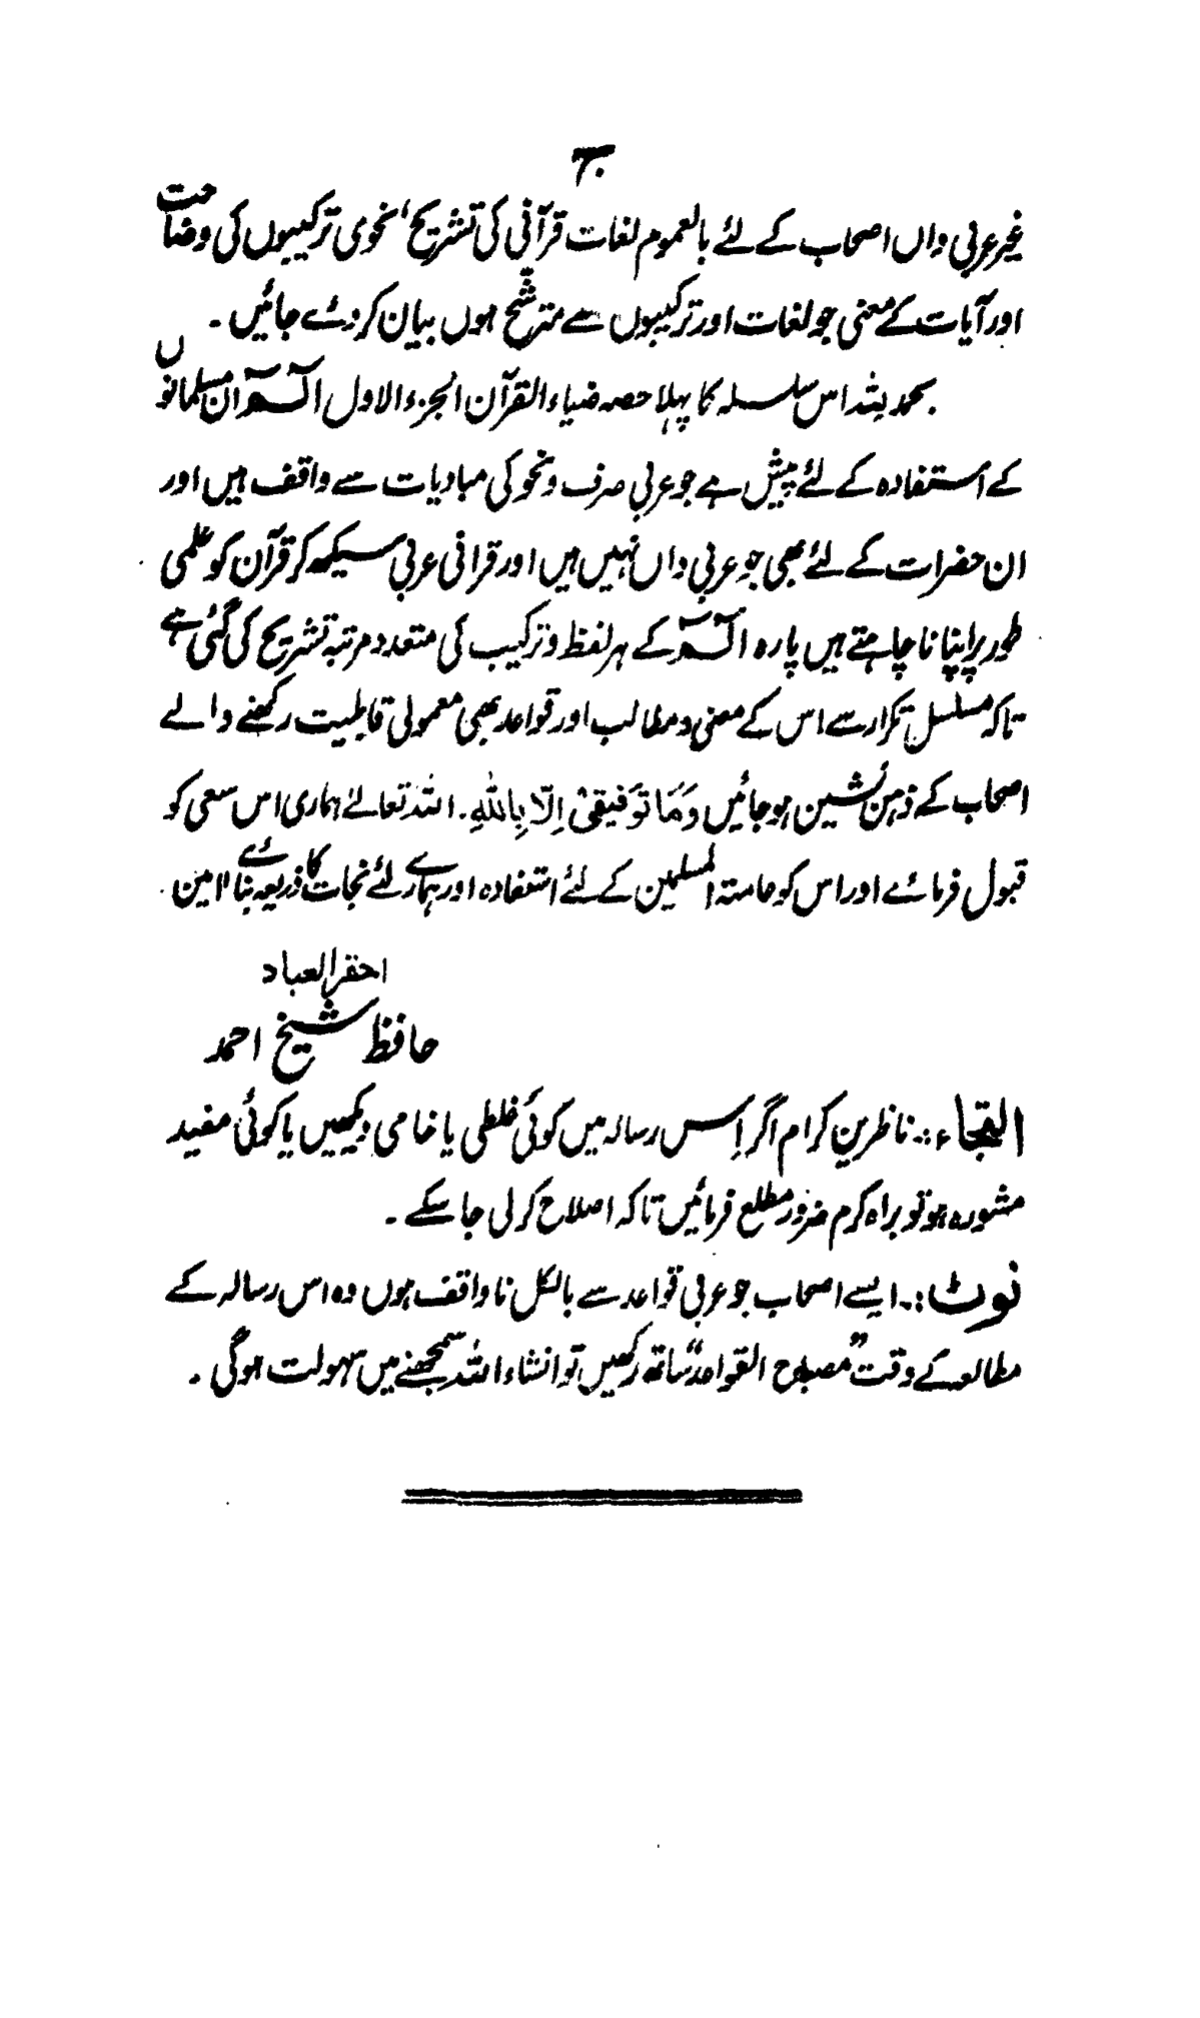 ۳
غیر عربی داں اصحاب کے لئے بالعموم لغات قرآنی کی تشریح، نحوی ترکیبوں کی وضاحت
اور آیات کے معنی جو لغات اور ترکیبوں سے مترشّح ہوں بیان کر دئے جائیں۔
بحمد للہ اس سلسلہ کا پہلا حصہ ضیاء القرآن الجزء الاول الٓـمٓ ان مسلمانوں
کے استفادہ کے لئے پیش ہے جو عربی صرف و نحو کی مبادیات سے واقف ہیں اور
ان حضرات کے لئے بھی جو عربی داں نہیں ہیں اور قرانی عربی سیکھ کر قرآن کو علمی
طور پر اپنانا چاہتے ہیں پارہ الٓـمٓ کے ہر لفظ و ترکیب کی متعدد مرتبہ تشریح کی گئی ہے
تاکہ مسلسل تکرار سے اس کے معنی و مطالب اور قواعد بھی معمولی قابلیت رکھنے والے
اصحاب کے ذہن نشین ہو جائیں وَمَا تَوفیقیْ اِلّا بِاللّٰهِ۔ اللہ تعالےٰ ہماری اس سعی کو
قبول فرمائے اور اس کو عامتہ المسلمین کے لئے استفادہ اور ہمارے لئے نجات کا ذریعہ بنائے امین۔
احقر العباد
حافظ شیخ احمد
التجاء :۔ ناظرین کرام اگر اِس رسالہ میں کوئی غلطی یا خامی دیکھیں یا کوئی مفید
مشورہ ہو تو براہ کرم ضرور مطلع فرمائیں تاکہ اصلاح کر لی جا سکے۔
نوٹ :۔ ایسے اصحاب جو عربی قواعد سے بالکل ناواقف ہوں وہ اس رسالہ کے
مطالعہ کے وقت ”مصباح القواعد“ ساتھ رکھیں تو انشاء اللہ سمجھنے میں سہولت ہوگی۔